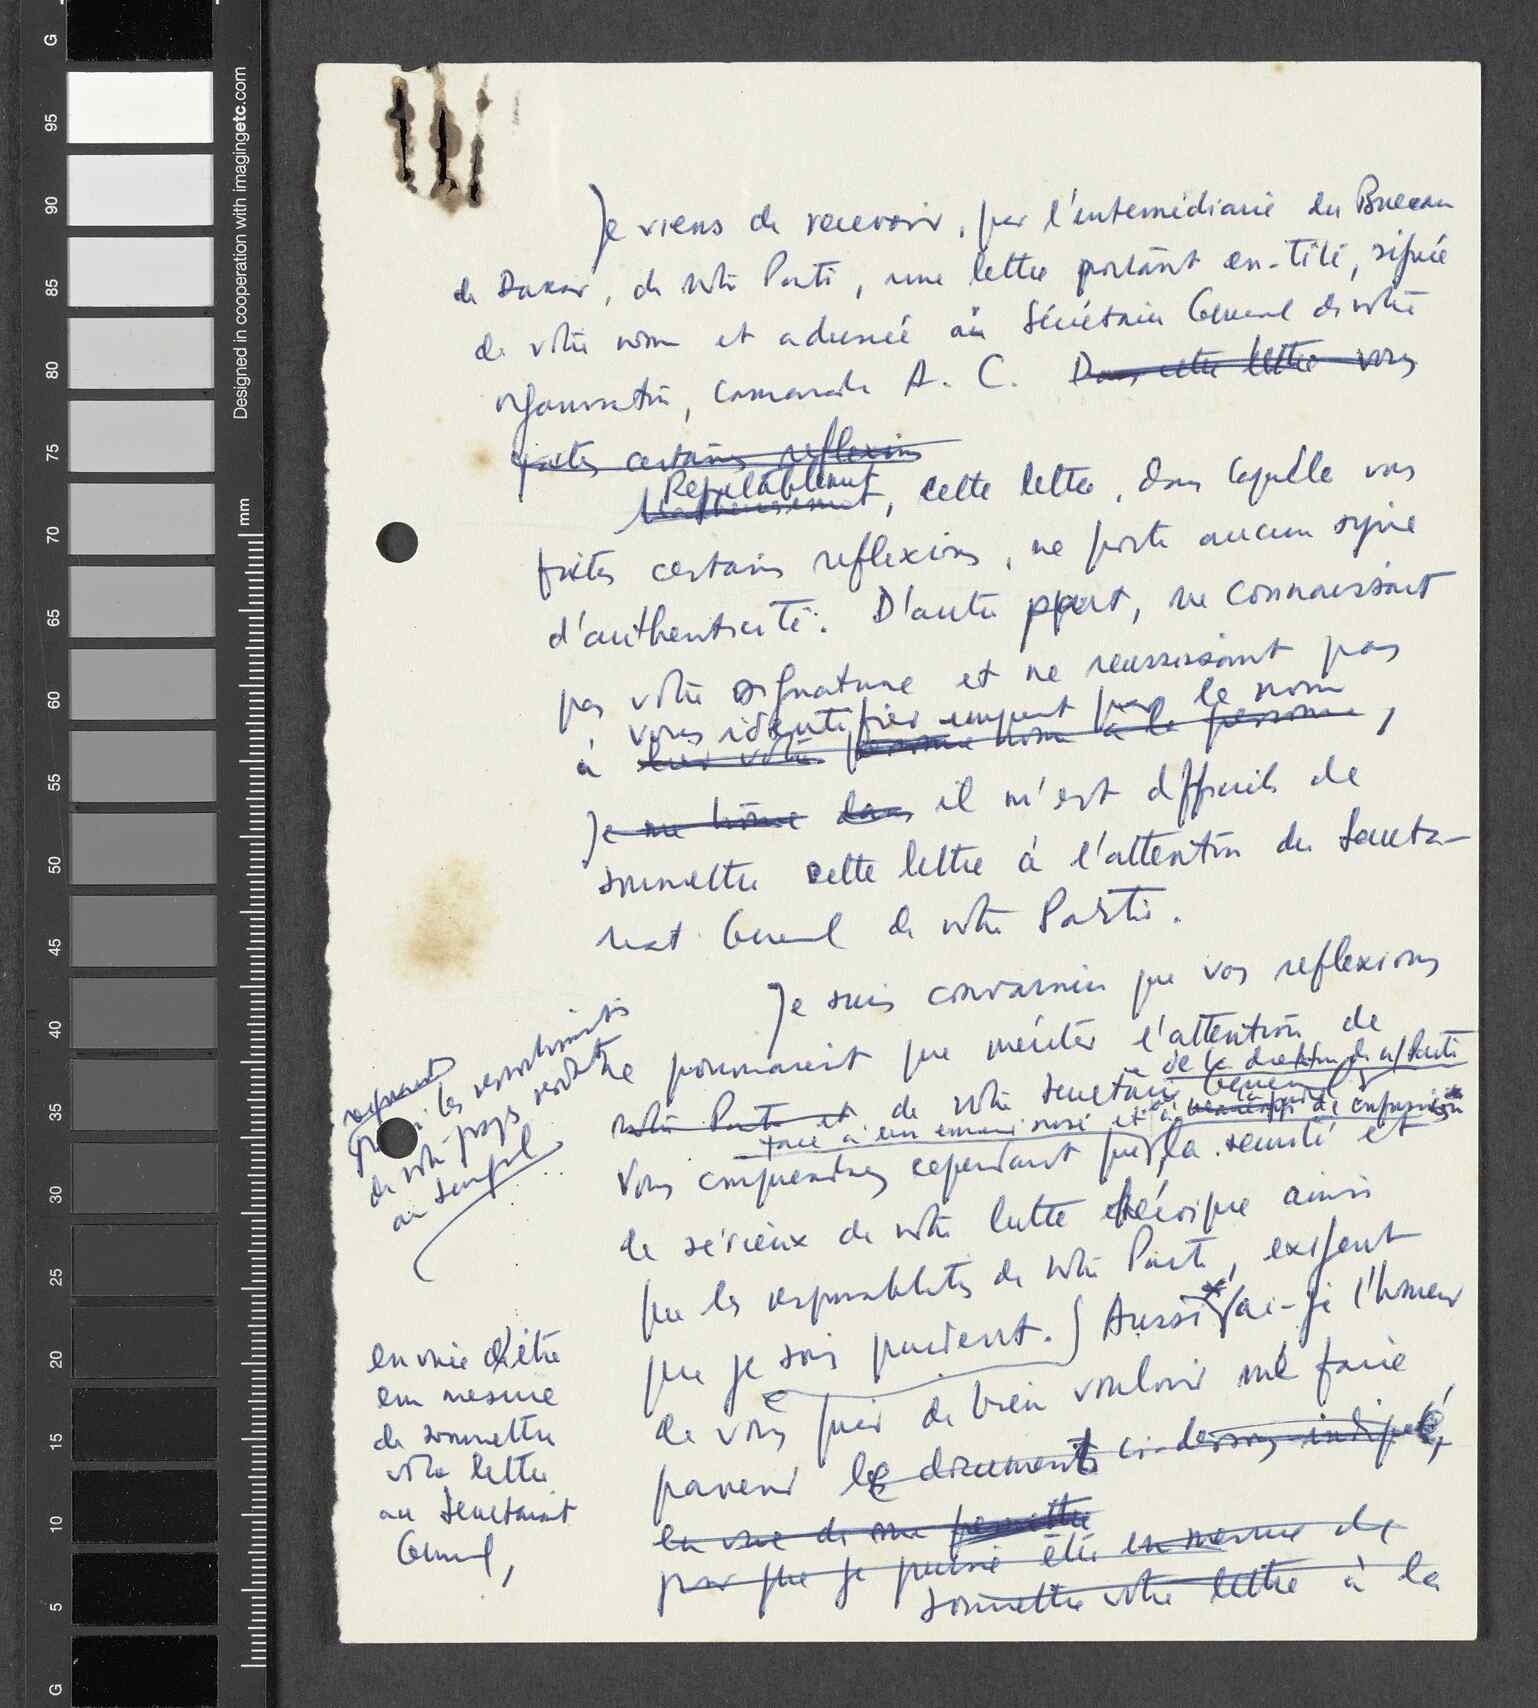 Je viens de recevoir, par l'intermédiaire du Bureau
de Dakar, de notre Parti, une lettre portant en-tête, signée
de votre nom et adressée au Sécrétaire Général de notre
organisation, camarade A. C. Dans cette lettre vous
faites certaines reflexions
Regrettablement
Malheureusement, cette lettre, dans laquelle vous
faites certaines reflexions, ne porte aucun signe
d'authenticité. D'autre part, ne connaissant
pas votre signature et ne reussissant pas
vous identifier par le nom
à
Je il m'est difficile de
soumettre cette lettre à l'attention du Secreta-
riat Général de notre Parti.
Je suis convaincu que vos reflexions
ne pourraient que mériter l'attention de
de la direction de Parti
notre Parti et de notre Secrétaire Général
face à un ennemi rusé et
Vous comprendrez cependant que la securité et
le sérieux de notre lutte héroïque ainsi
que les responsabilités de notre Parti, exigent
que je sois prudent. Aussi ai-je l'honneur
de vous prier de bien vouloir me faire
parvenir les documents ci-dessous indiqués,
en vue de me permettre
pour que je puisse être en mesure de
soumettre votre lettre à la
les ressortissants
de votre pays
au Sengal
en vue d'être
em mesure
de soumettre
votre lettre
au Secretariat
General,
Designed in cooperation with imagingetc.com
mm
G
95
90
85
80
75
70
65
60
55
50
45
40
35
30
25
20
15
10
5
G